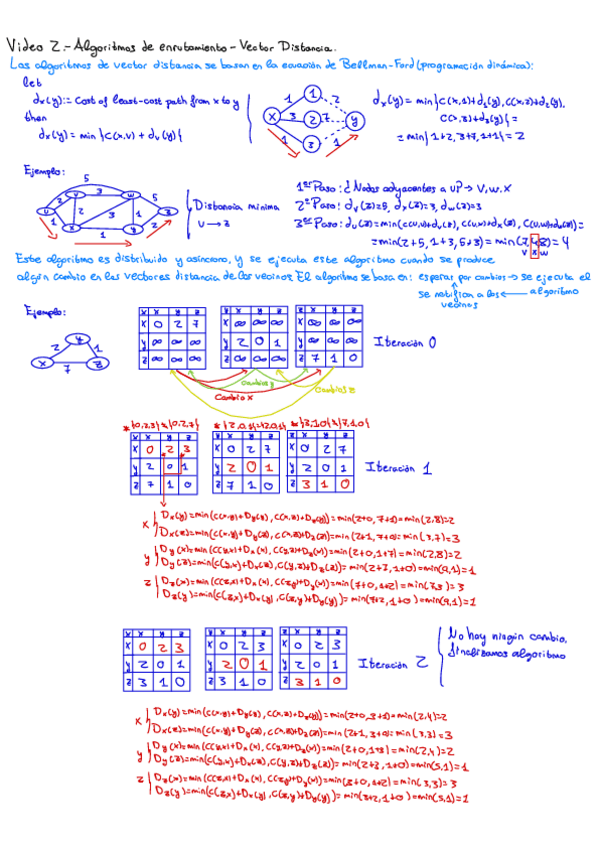 Video 2.- Algoritmos de enrutamiento - Vector Distancia.
Los algoritmos de vector distancia se basan en la ecuación de Bellman-Ford (programación dinámica):
let
dx(y) := Cost of least-cost path from x to y
then
dx(y) = min {c(x,v) + dv(y)}
1
2
x
3
2
7
y
1
3
1
dx(y) = min{c(x,1)+d1(y), c(x,2)+d2(y),
c(x,3)+d3(y)} =
= min{1+2, 3+7, 1+1} = 2
Ejemplo:
5
v
3
w
5
2
u
2
3
1
z
1
x
1
y
2
Distancia mínima
u → z
1er Paso: ¿Nodos adyacentes a u? → v, w, x
2º Paso: dv(z)=5, dx(z)=3, dw(z)=3
3er Paso: du(z)=min(c(u,v)+dv(z), c(u,x)+dx(z), c(u,w)+dw(z))=
=min(2+5, 1+3, 5+3) = min(7,4,8) = 4
v x w
Este algoritmo es distribuido y asíncrono, y se ejecuta este algoritmo cuando se produce
algún cambio en los vectores distancia de los vecinos. El algoritmo se basa en: esperar por cambios → se ejecuta el
algoritmo
se notifica a los
vecinos
Ejemplo:
y
2
1
x
7
z
x y z
x 0 2 7
y ∞ ∞ ∞
z ∞ ∞ ∞
x y z
x ∞ ∞ ∞
y 2 0 1
z ∞ ∞ ∞
x y z
x ∞ ∞ ∞
y ∞ ∞ ∞
z 7 1 0
Iteración 0
Cambios y
Cambios z
Cambio x
*{0,2,3}≠{0,2,7}
*{2,0,1}={2,0,1}
*{3,1,0}≠{7,1,0}
x y z
x 0 2 3
y 2 0 1
z 7 1 0
x y z
x 0 2 7
y 2 0 1
z 7 1 0
x y z
x 0 2 7
y 2 0 1
z 3 1 0
Iteración 1
x Dx(y)=min(c(x,y)+Dy(y), c(x,z)+Dz(y))=min(2+0, 7+1)=min(2,8)=2
Dx(z)=min(c(x,y)+Dy(z), c(x,z)+Dz(z))=min(2+1, 7+0)=min(3,7)=3
y Dy(x)=min(c(y,x)+Dx(x), c(y,z)+Dz(x))=min(2+0,1+7)=min(2,8)=2
Dy(z)=min(c(y,x)+Dx(z), c(y,z)+Dz(z))=min(2+7,1+0)=min(9,1)=1
z Dz(x)=min(c(z,x)+Dx(x), c(z,y)+Dy(x))=min(7+0,1+2)=min(7,3)=3
Dz(y)=min(c(z,x)+Dx(y), c(z,y)+Dy(y))=min(7+2,1+0)=min(9,1)=1
x y z
x 0 2 3
y 2 0 1
z 3 1 0
x y z
x 0 2 3
y 2 0 1
z 3 1 0
x y z
x 0 2 3
y 2 0 1
z 3 1 0
Iteración 2
No hay ningún cambio,
finalizamos algoritmo
x Dx(y)=min(c(x,y)+Dy(y), c(x,z)+Dz(y))=min(2+0, 3+1)=min(2,4)=2
Dx(z)=min(c(x,y)+Dy(z), c(x,z)+Dz(z))=min(2+1, 3+0)=min(3,3)=3
y Dy(x)=min(c(y,x)+Dx(x), c(y,z)+Dz(x))=min(2+0,1+3)=min(2,4)=2
Dy(z)=min(c(y,x)+Dx(z), c(y,z)+Dz(z))=min(2+3,1+0)=min(5,1)=1
z Dz(x)=min(c(z,x)+Dx(x), c(z,y)+Dy(x))=min(3+0,1+2)=min(3,3)=3
Dz(y)=min(c(z,x)+Dx(y), c(z,y)+Dy(y))=min(3+2,1+0)=min(5,1)=1